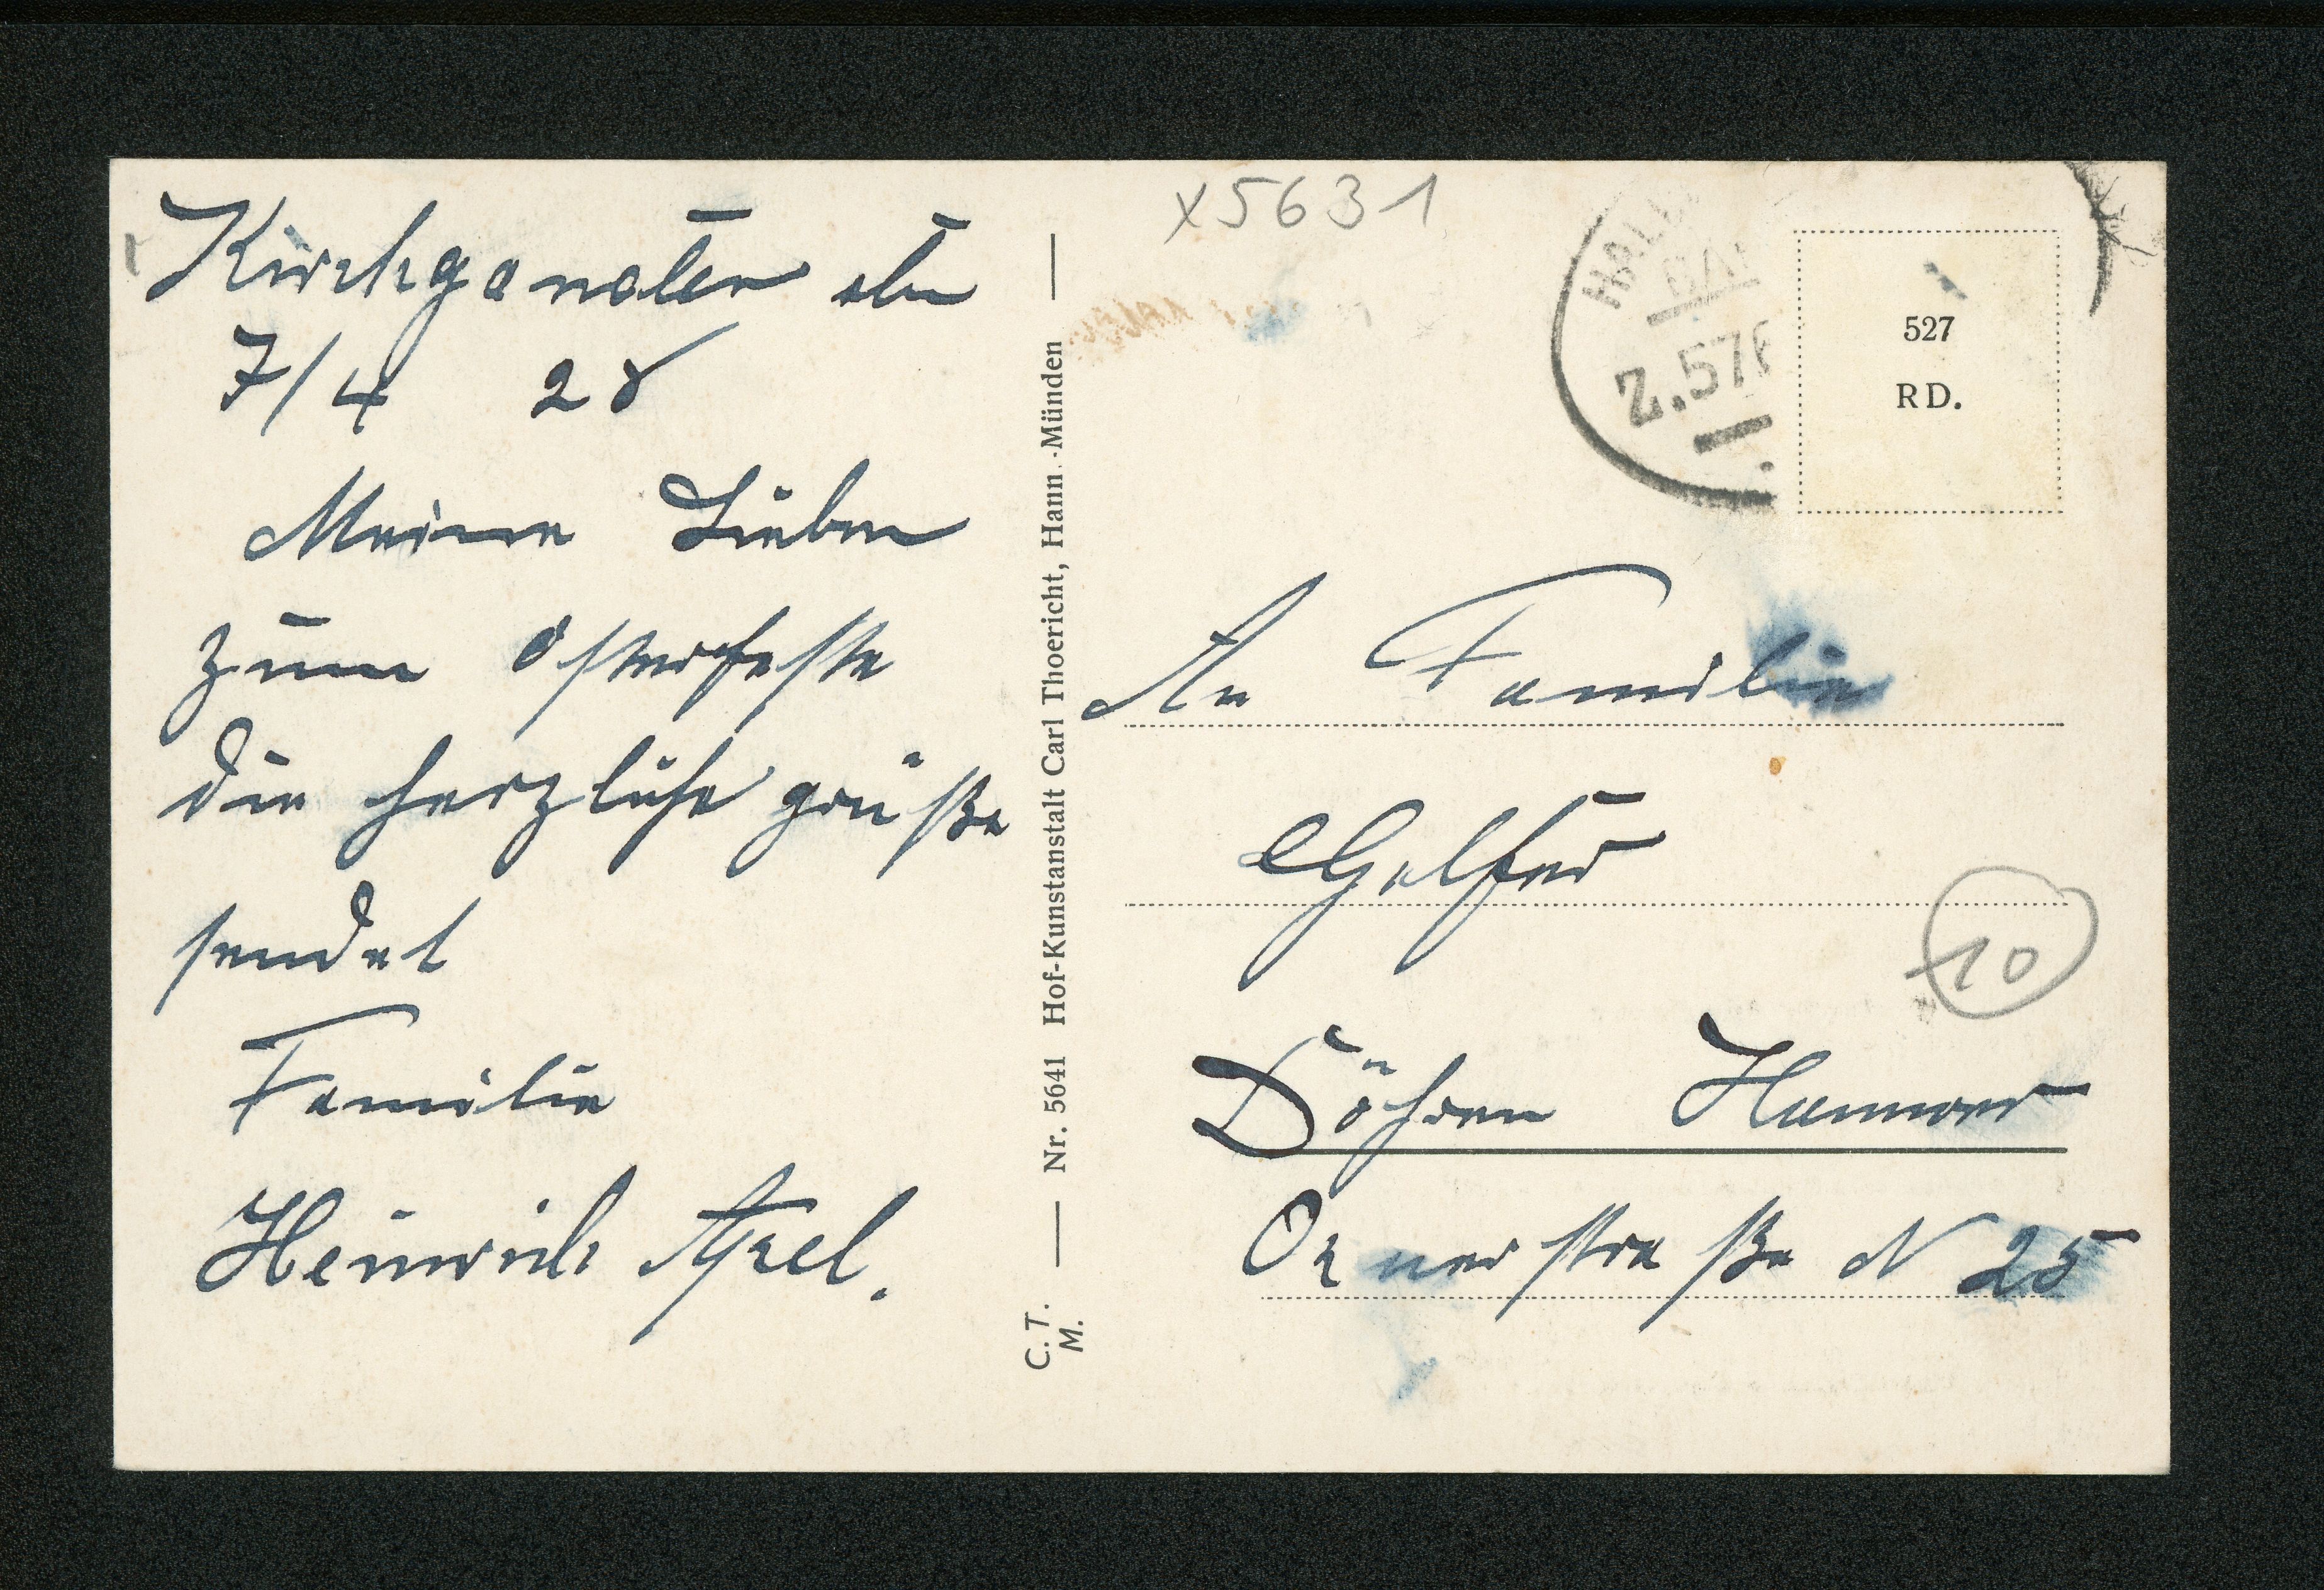 Kirchgandern den
7/4 28
Meine Lieben
zum Osterfeste
die herzliche grüße
sendet
Familie
Heinrich Apel.
C. T.
M.
Nr. 5641 Hof-Kunstanstalt Carl Thoericht, Hann.-Münden
x5631
HALL
BA
Z.576
527
RD.
An Familie
10
Döhren Hannover
straße N 25